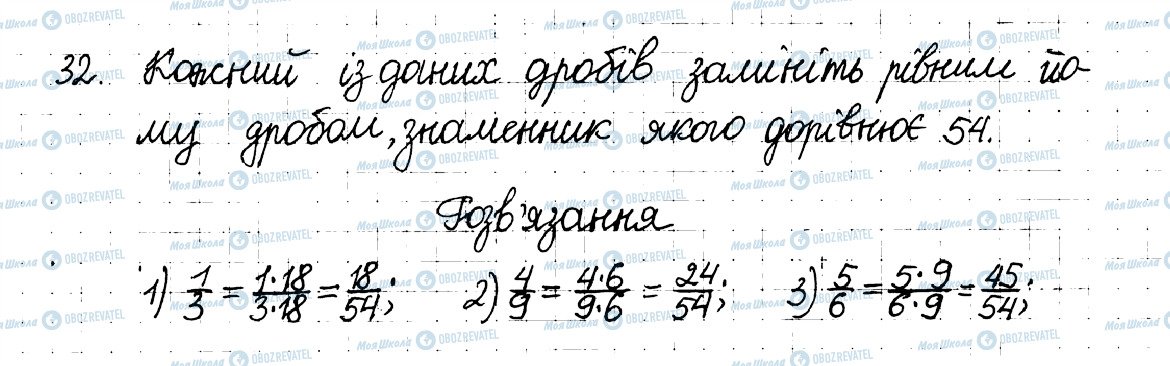 32. Кожний із даних дробів замініть рівним йо-
му дробом, знаменник якого дорівнює 54.
Розв'язання
1) 1/3 = 1·18/3·18 = 18/54; 2) 4/9 = 4·6/9·6 = 24/54; 3) 5/6 = 5·9/6·9 = 45/54;